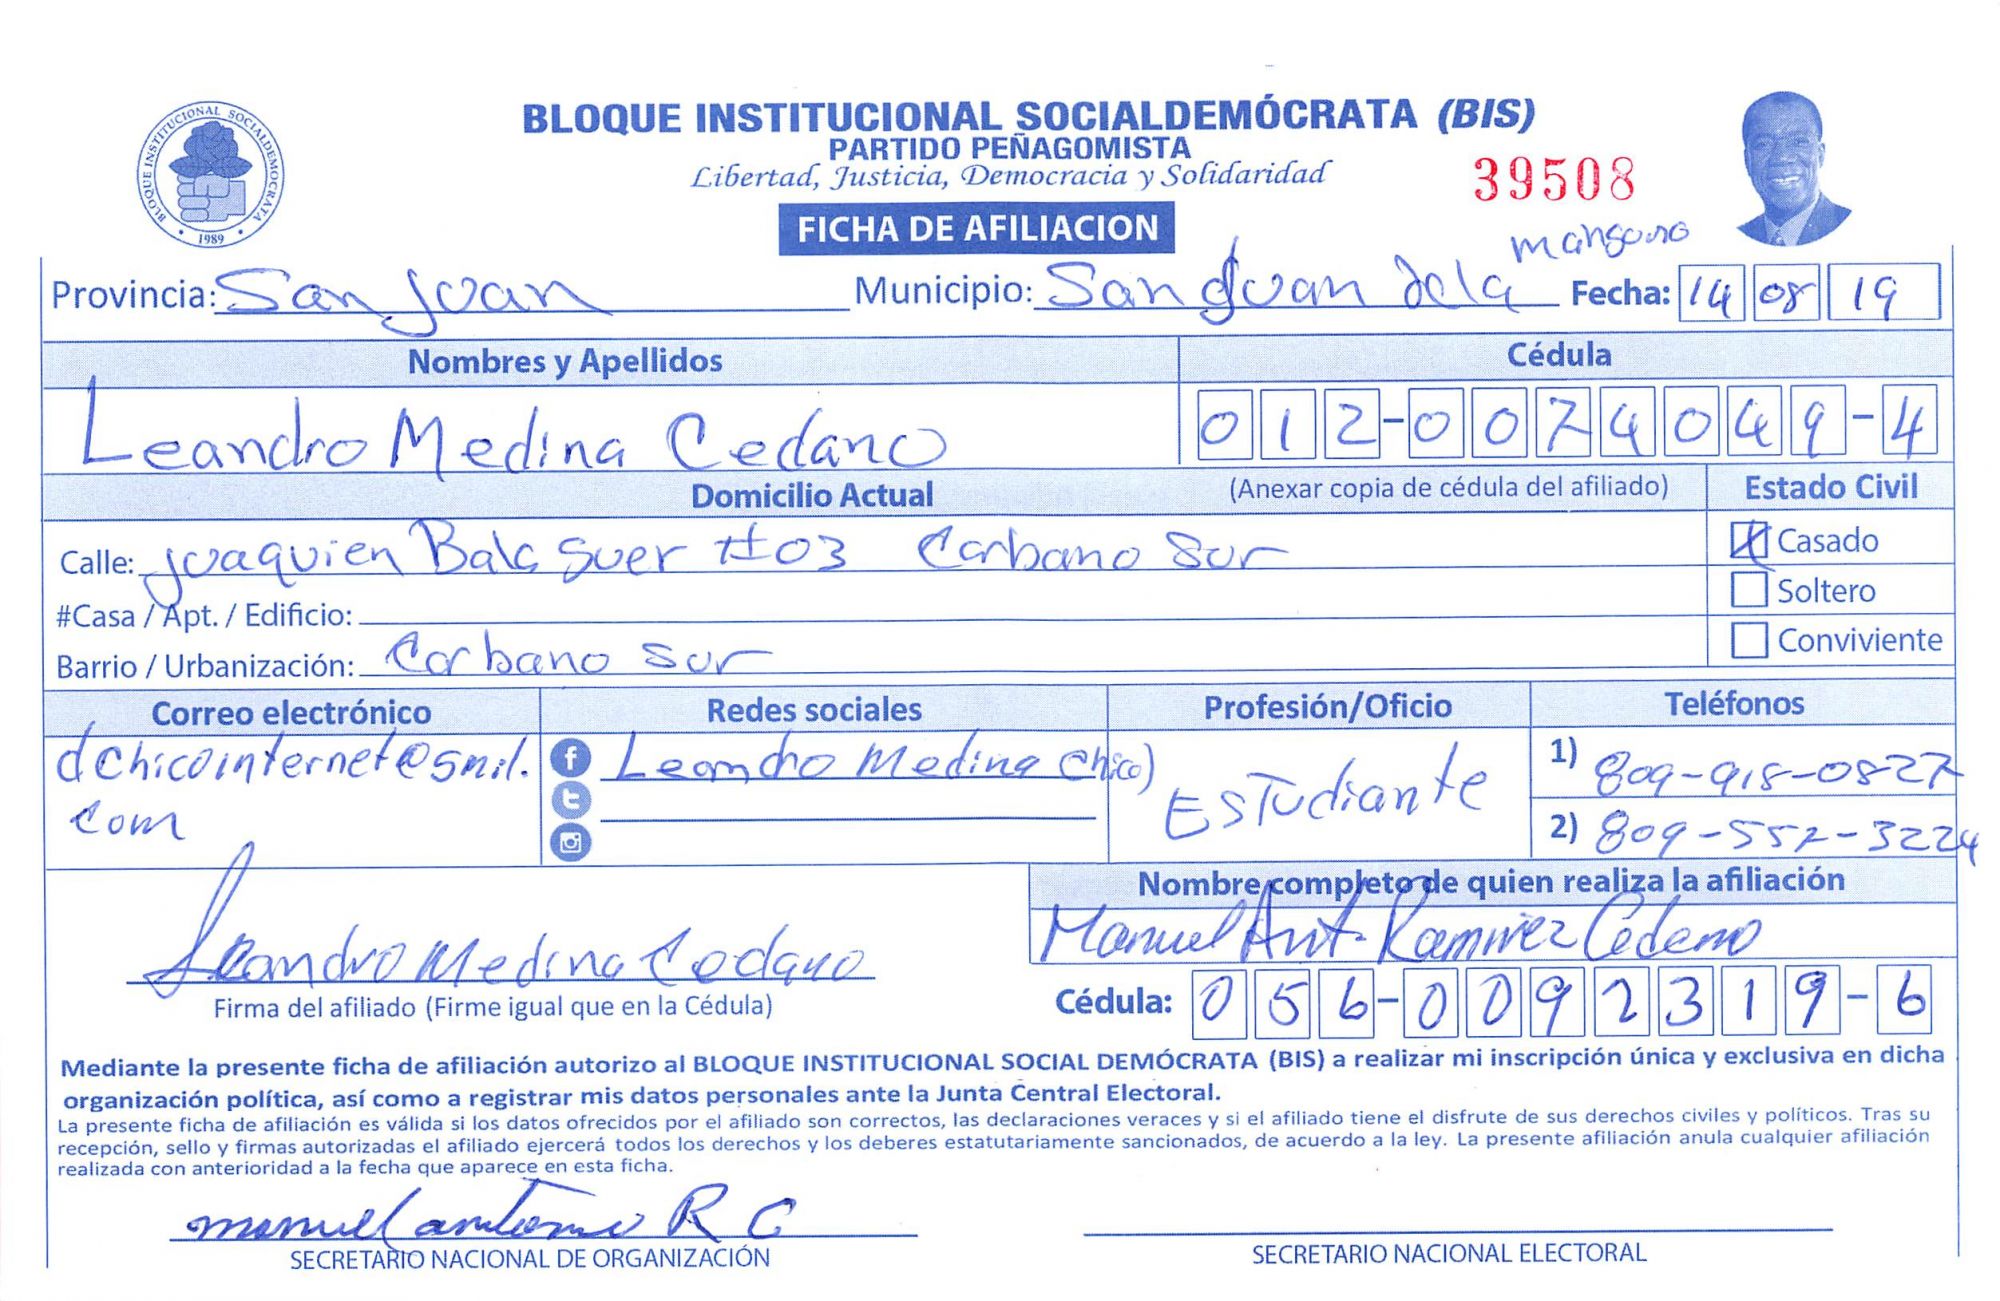 BLOQUE INSTITUCIONAL SOCIALDEMÓCRATA (BIS)
PARTIDO PEÑAGOMISTA
Libertad, Justicia, Democracia y Solidaridad
39508
BLOQUE INSTITUCIONAL SOCIALDEMOCRATA
1989
FICHA DE AFILIACION
Provincia: San Juan Municipio: San Juan dela Fecha: 14 08 19
Nombres y Apellidos Cédula
Leandro Medina Cedano 012-0074049-4
Domicilio Actual (Anexar copia de cédula del afiliado) Estado Civil
Calle: Joaquien Balaguer #03 Corbano Sur Casado
#Casa / Apt. / Edificio: Soltero
Barrio / Urbanización: Corbano Sur Conviviente
Correo electrónico Redes sociales Profesión/Oficio Teléfonos
dchicointernet@gmil. Leandro Medina Chico) Estudiante 1) 809-918-0827
com 2) 809-557-3224
Nombre completo de quien realiza la afiliación
Leandro Medina Cedano Manuel Ant. Ramirez Cedeno
Firma del afiliado (Firme igual que en la Cédula) Cédula: 056-0092319-6
Mediante la presente ficha de afiliación autorizo al BLOQUE INSTITUCIONAL SOCIAL DEMÓCRATA (BIS) a realizar mi inscripción única y exclusiva en dicha
organización política, así como a registrar mis datos personales ante la Junta Central Electoral.
La presente ficha de afiliación es válida si los datos ofrecidos por el afiliado son correctos, las declaraciones veraces y si el afiliado tiene el disfrute de sus derechos civiles y políticos. Tras su
recepción, sello y firmas autorizadas el afiliado ejercerá todos los derechos y los deberes estatutariamente sancionados, de acuerdo a la ley. La presente afiliación anula cualquier afiliación
realizada con anterioridad a la fecha que aparece en esta ficha.
manuel antonio R C
SECRETARIO NACIONAL DE ORGANIZACIÓN SECRETARIO NACIONAL ELECTORAL